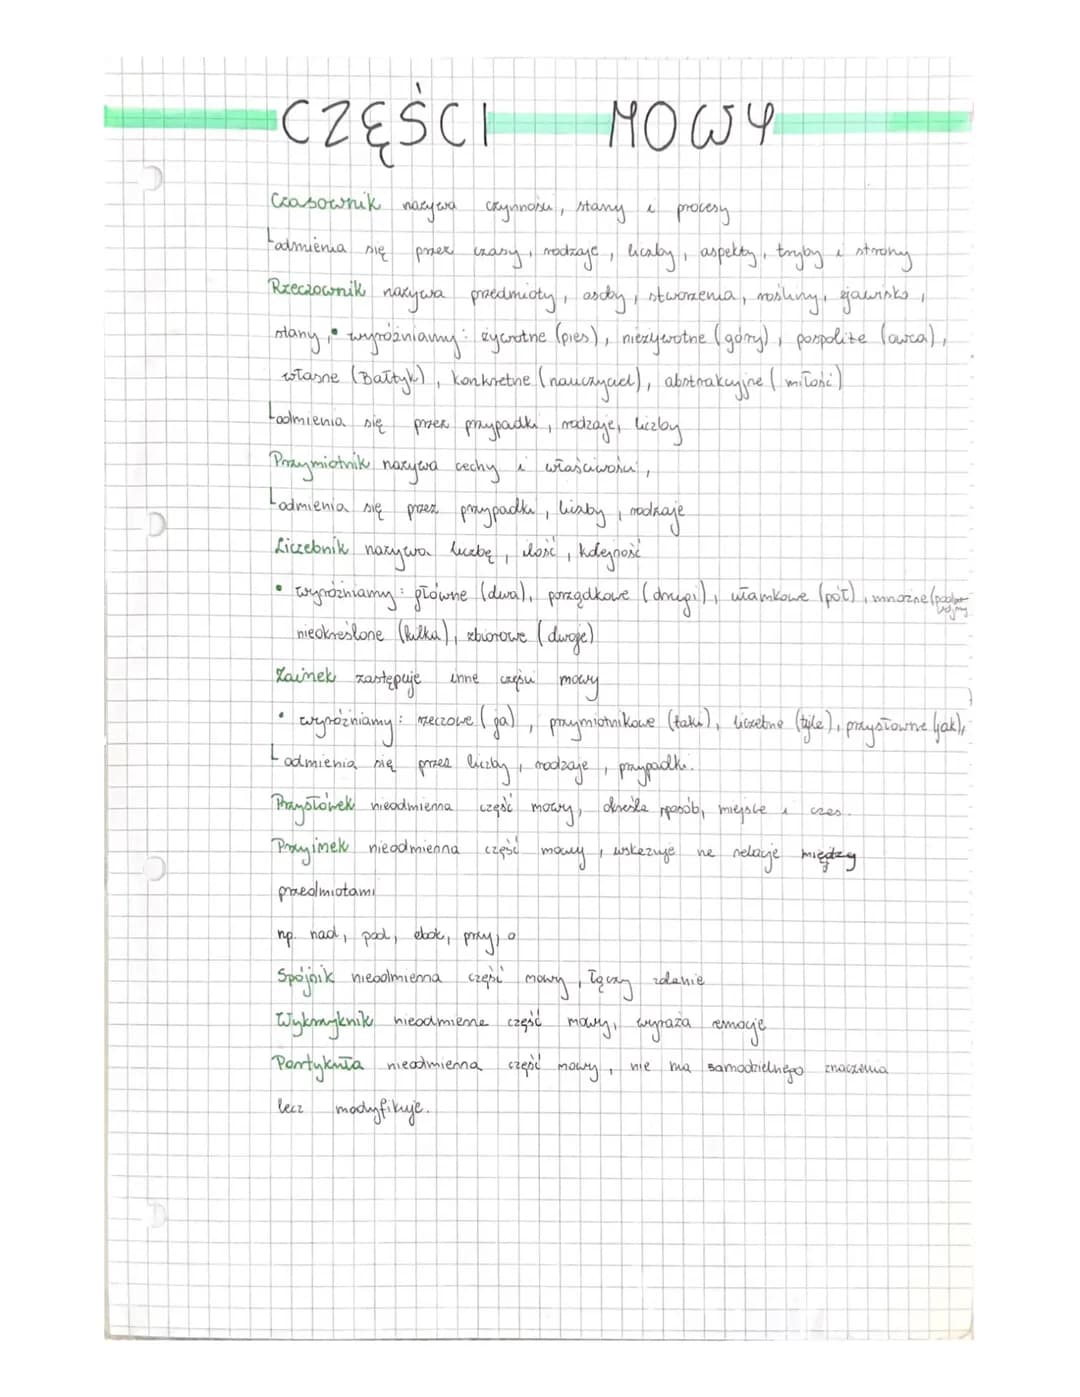 CZĘŚCI MOWY
Czasownik nazywa czynności, stany i procesy
odmienia się przez czasy, rodzaje, liczby, aspekty, tryby i strony
Rzeczownik nazywa przedmioty, osoby, stworzenia, rośliny, zjawiska,
stany, • wyróżniamy: żywotne (pies), nieżywotne (góry), pospolite (owca),
własne (Bałtyk), konkretne (nauczyciel), abstrakcyjne (miłość)
odmienia się przez przypadki, rodzaje, liczby
Przymiotnik nazywa cechy i właściwości,
odmienia się przez przypadki, liczby, rodzaje
Liczebnik nazywa liczbę, ilość, kolejność
• wyróżniamy: główne (dwa), porządkowe (drugi), ułamkowe (pół), mnożne
nieokreślone (kilka), zbiorowe (dwoje)
Zaimek zastępuje inne części mowy
• wyróżniamy: rzeczowe (ja), przymiotnikowe (taki), liczebne (tyle), przysłowne (jak),
odmienia się przez liczby, rodzaje, przypadki.
Przysłówek nieodmienna część mowy, określa sposób, miejsce i czas.
Przyimek nieodmienna część mowy, wskazuje na relacje między
przedmiotami
np. nad, pod, obok, przy, o
Spójnik nieodmienna część mowy, łączy zdanie
Wykrzyknik nieodmienne część mowy, wyraża emocje
Partykuła nieodmienna część mowy, nie ma samodzielnego znaczenia
lecz modyfikuje.